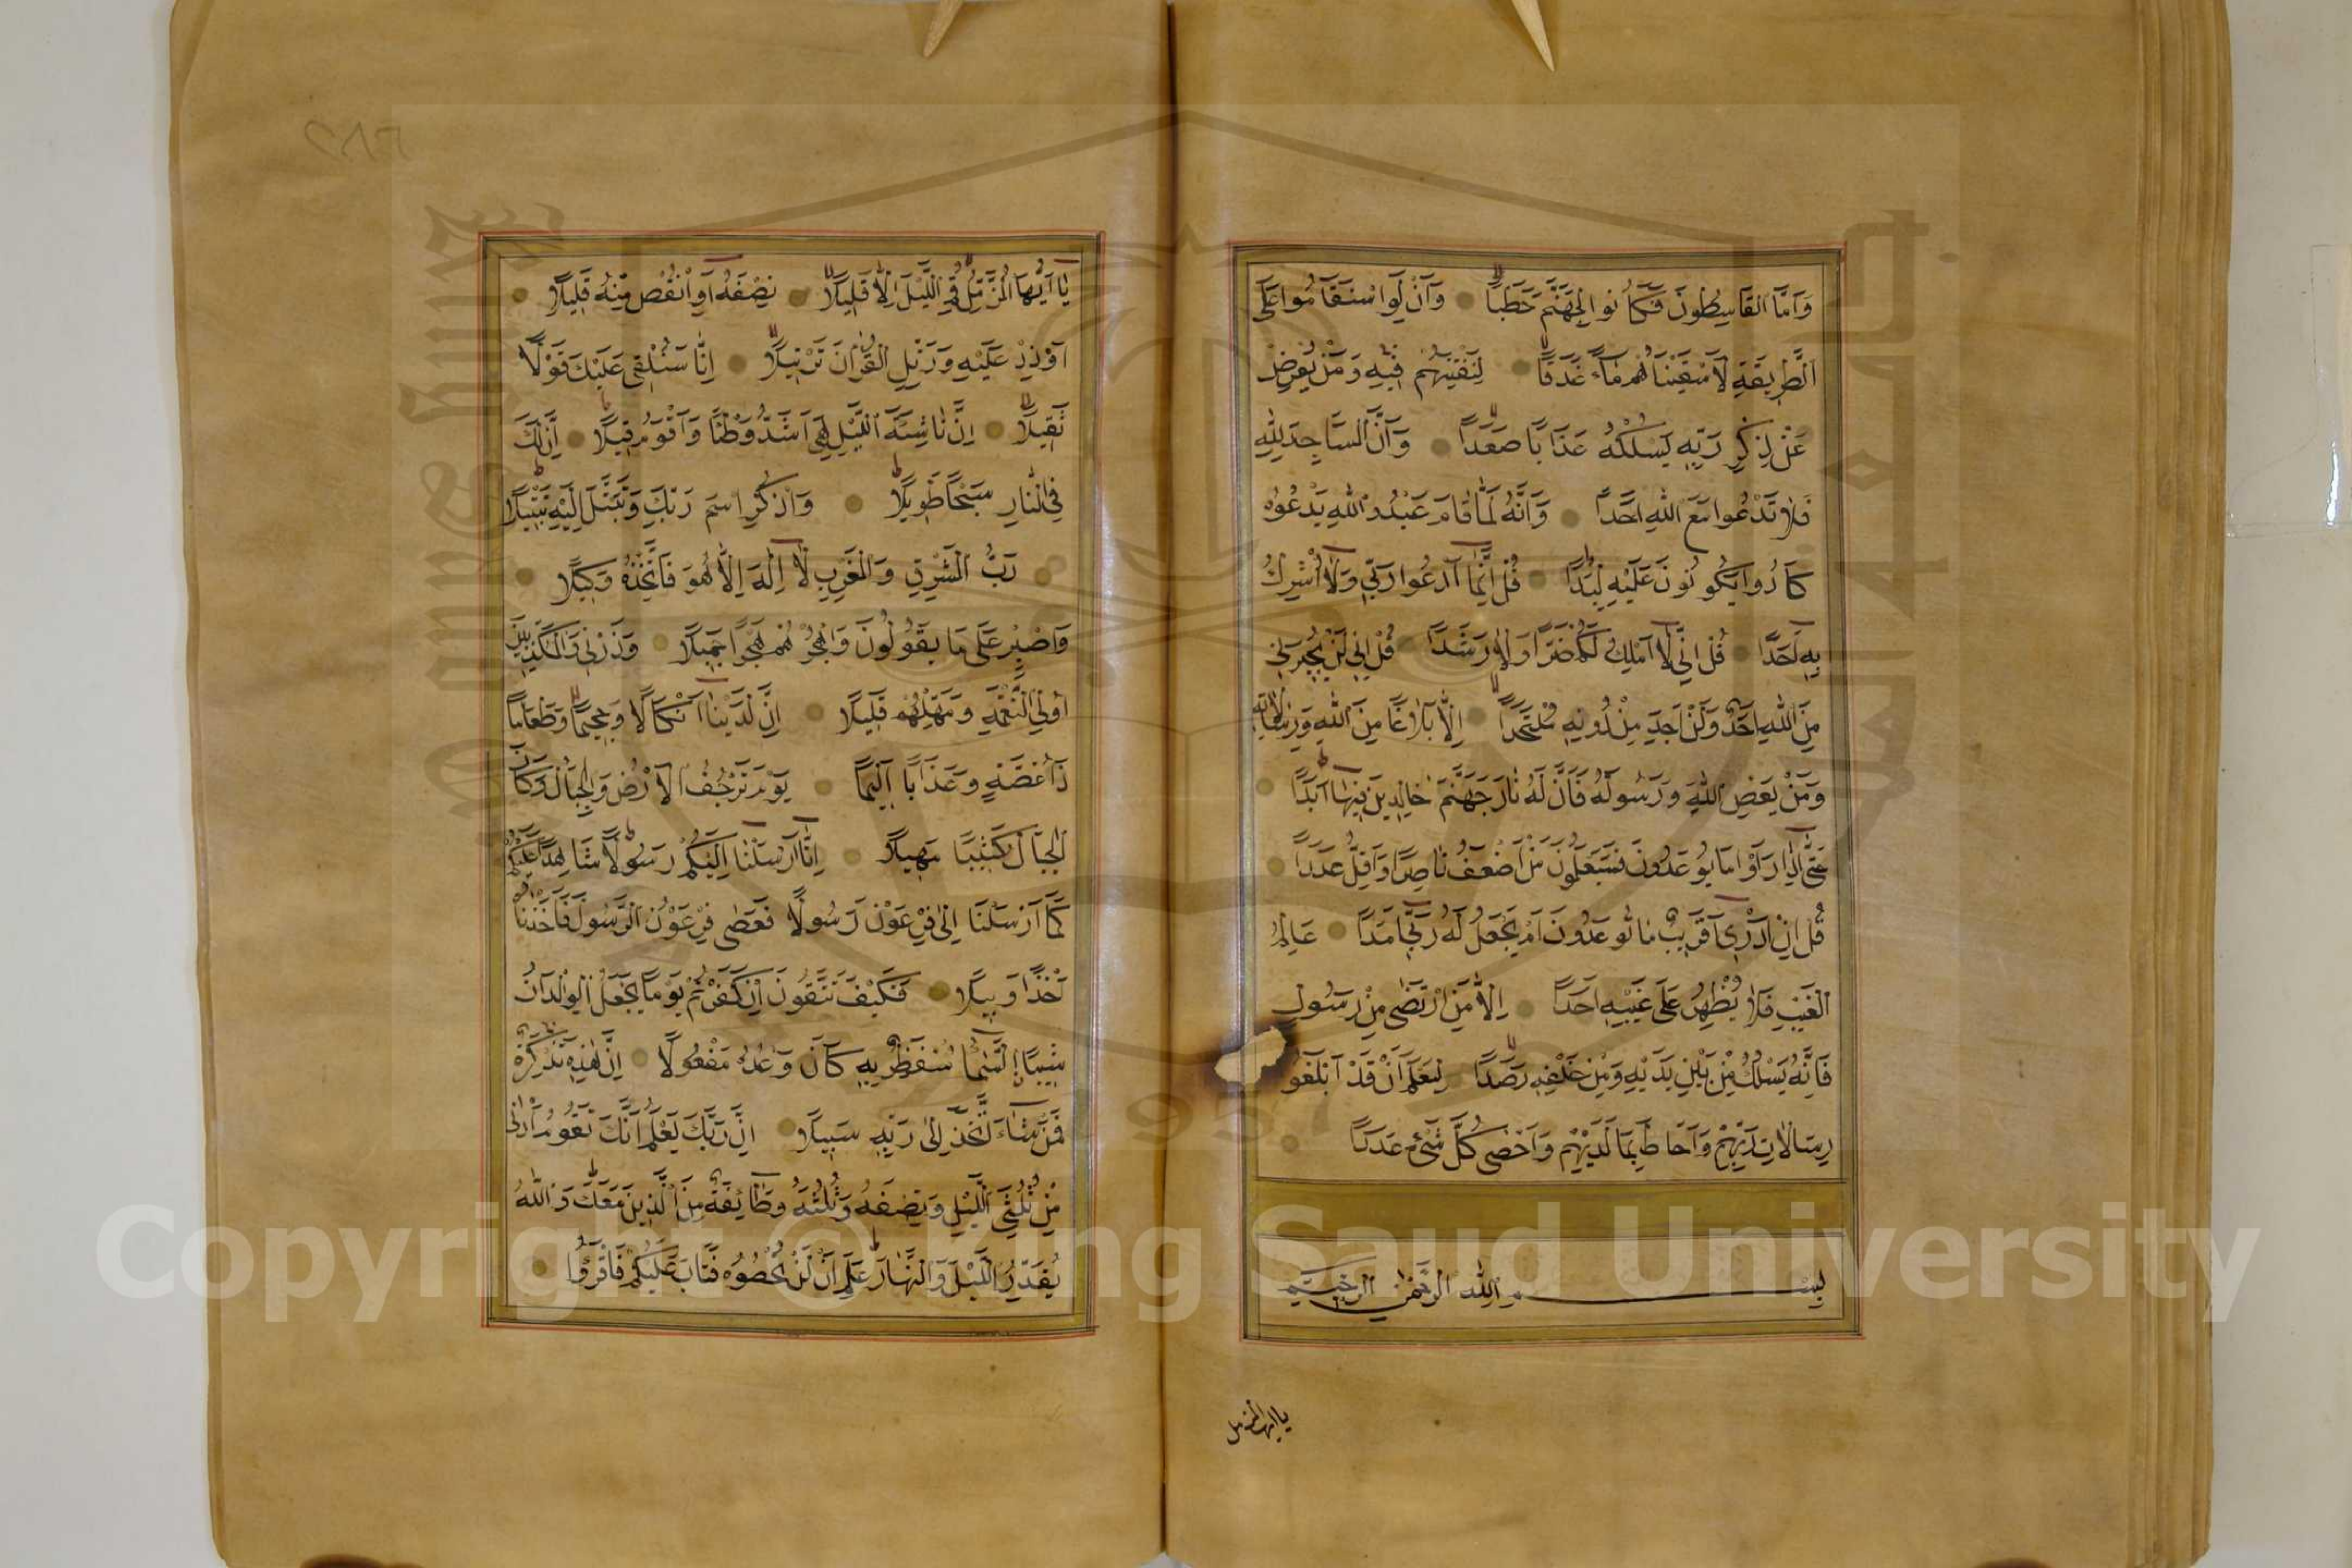 وَاَمَّا القَاسِطُونَ فَكَانُوا لِجَهَنَّمَ حَطَبًا وَاَنْ لَوِ اسْتَقَامُوا عَلَى
الطَّرِيقَةِ لَاَسْقَيْنَاهُمْ مَاءً غَدَقًا لِنَفْتِنَهُمْ فِيهِ وَمَنْ يُعْرِضْ
عَنْ ذِكْرِ رَبِّهِ يَسْلُكْهُ عَذَابًا صَعَدًا وَاَنَّ المَسَاجِدَ لِلّٰهِ
فَلَا تَدْعُوا مَعَ اللهِ اَحَدًا وَاَنَّهُ لَمَّا قَامَ عَبْدُ اللهِ يَدْعُوهُ
كَادُوا يَكُونُونَ عَلَيْهِ لِبَدًا قُلْ اِنَّمَا اَدْعُوا رَبِّي وَلَا اُشْرِكُ
بِهِ اَحَدًا قُلْ اِنِّي لَا اَمْلِكُ لَكُمْ ضَرًّا وَلَا رَشَدًا قُلْ اِنِّي لَنْ يُجِيرَنِي
مِنَ اللهِ اَحَدٌ وَلَنْ اَجِدَ مِنْ دُونِهِ مُلْتَحَدًا اِلَّا بَلَاغًا مِنَ اللهِ وَرِسَالَاتِهِ
وَمَنْ يَعْصِ اللهَ وَرَسُولَهُ فَاِنَّ لَهُ نَارَ جَهَنَّمَ خَالِدِينَ فِيهَا اَبَدًا
حَتَّى اِذَا رَاَوْا مَا يُوعَدُونَ فَسَيَعْلَمُونَ مَنْ اَضْعَفُ نَاصِرًا وَاَقَلُّ عَدَدًا
قُلْ اِنْ اَدْرِي اَقَرِيبٌ مَا تُوعَدُونَ اَمْ يَجْعَلُ لَهُ رَبِّي اَمَدًا عَالِمُ
الْغَيْبِ فَلَا يُظْهِرُ عَلَى غَيْبِهِ اَحَدًا اِلَّا مَنِ ارْتَضَى مِنْ رَسُولٍ
فَاِنَّهُ يَسْلُكُ مِنْ بَيْنِ يَدَيْهِ وَمِنْ خَلْفِهِ رَصَدًا لِيَعْلَمَ اَنْ قَدْ اَبْلَغُوا
رِسَالَاتِ رَبِّهِمْ وَاَحَاطَ بِمَا لَدَيْهِمْ وَاَحْصَى كُلَّ شَيْءٍ عَدَدًا
بِسْمِ اللهِ الرَّحْمٰنِ الرَّحِيمِ
ياايها المزمل
يَا اَيُّهَا الْمُزَّمِّلُ قُمِ اللَّيْلَ اِلَّا قَلِيلًا نِصْفَهُ اَوِ انْقُصْ مِنْهُ قَلِيلًا
اَوْ زِدْ عَلَيْهِ وَرَتِّلِ الْقُرْاٰنَ تَرْتِيلًا اِنَّا سَنُلْقِي عَلَيْكَ قَوْلًا
ثَقِيلًا اِنَّ نَاشِئَةَ اللَّيْلِ هِيَ اَشَدُّ وَطْئًا وَاَقْوَمُ قِيلًا اِنَّ لَكَ
فِي النَّهَارِ سَبْحًا طَوِيلًا وَاذْكُرِ اسْمَ رَبِّكَ وَتَبَتَّلْ اِلَيْهِ تَبْتِيلًا
رَبُّ الْمَشْرِقِ وَالْمَغْرِبِ لَا اِلٰهَ اِلَّا هُوَ فَاتَّخِذْهُ وَكِيلًا
وَاصْبِرْ عَلَى مَا يَقُولُونَ وَاهْجُرْهُمْ هَجْرًا جَمِيلًا وَذَرْنِي وَالْمُكَذِّبِينَ
اُولِي النَّعْمَةِ وَمَهِّلْهُمْ قَلِيلًا اِنَّ لَدَيْنَا اَنْكَالًا وَجَحِيمًا وَطَعَامًا
ذَا غُصَّةٍ وَعَذَابًا اَلِيمًا يَوْمَ تَرْجُفُ الْاَرْضُ وَالْجِبَالُ وَكَانَ
الْجِبَالُ كَثِيبًا مَهِيلًا اِنَّا اَرْسَلْنَا اِلَيْكُمْ رَسُولًا شَاهِدًا عَلَيْكُمْ
كَمَا اَرْسَلْنَا اِلٰى فِرْعَوْنَ رَسُولًا فَعَصٰى فِرْعَوْنُ الرَّسُولَ فَاَخَذْنَاهُ
اَخْذًا وَبِيلًا فَكَيْفَ تَتَّقُونَ اِنْ كَفَرْتُمْ يَوْمًا يَجْعَلُ الْوِلْدَانَ
شِيبًا السَّمَاءُ مُنْفَطِرٌ بِهِ كَانَ وَعْدُهُ مَفْعُولًا اِنَّ هٰذِهِ تَذْكِرَةٌ
فَمَنْ شَاءَ اتَّخَذَ اِلٰى رَبِّهِ سَبِيلًا اِنَّ رَبَّكَ يَعْلَمُ اَنَّكَ تَقُومُ اَدْنٰى
مِنْ ثُلُثَيِ اللَّيْلِ وَنِصْفَهُ وَثُلُثَهُ وَطَائِفَةٌ مِنَ الَّذِينَ مَعَكَ وَاللّٰهُ
يُقَدِّرُ اللَّيْلَ وَالنَّهَارَ عَلِمَ اَنْ لَنْ تُحْصُوهُ فَتَابَ عَلَيْكُمْ فَاقْرَؤُا
Copyright © King Saud University
1957